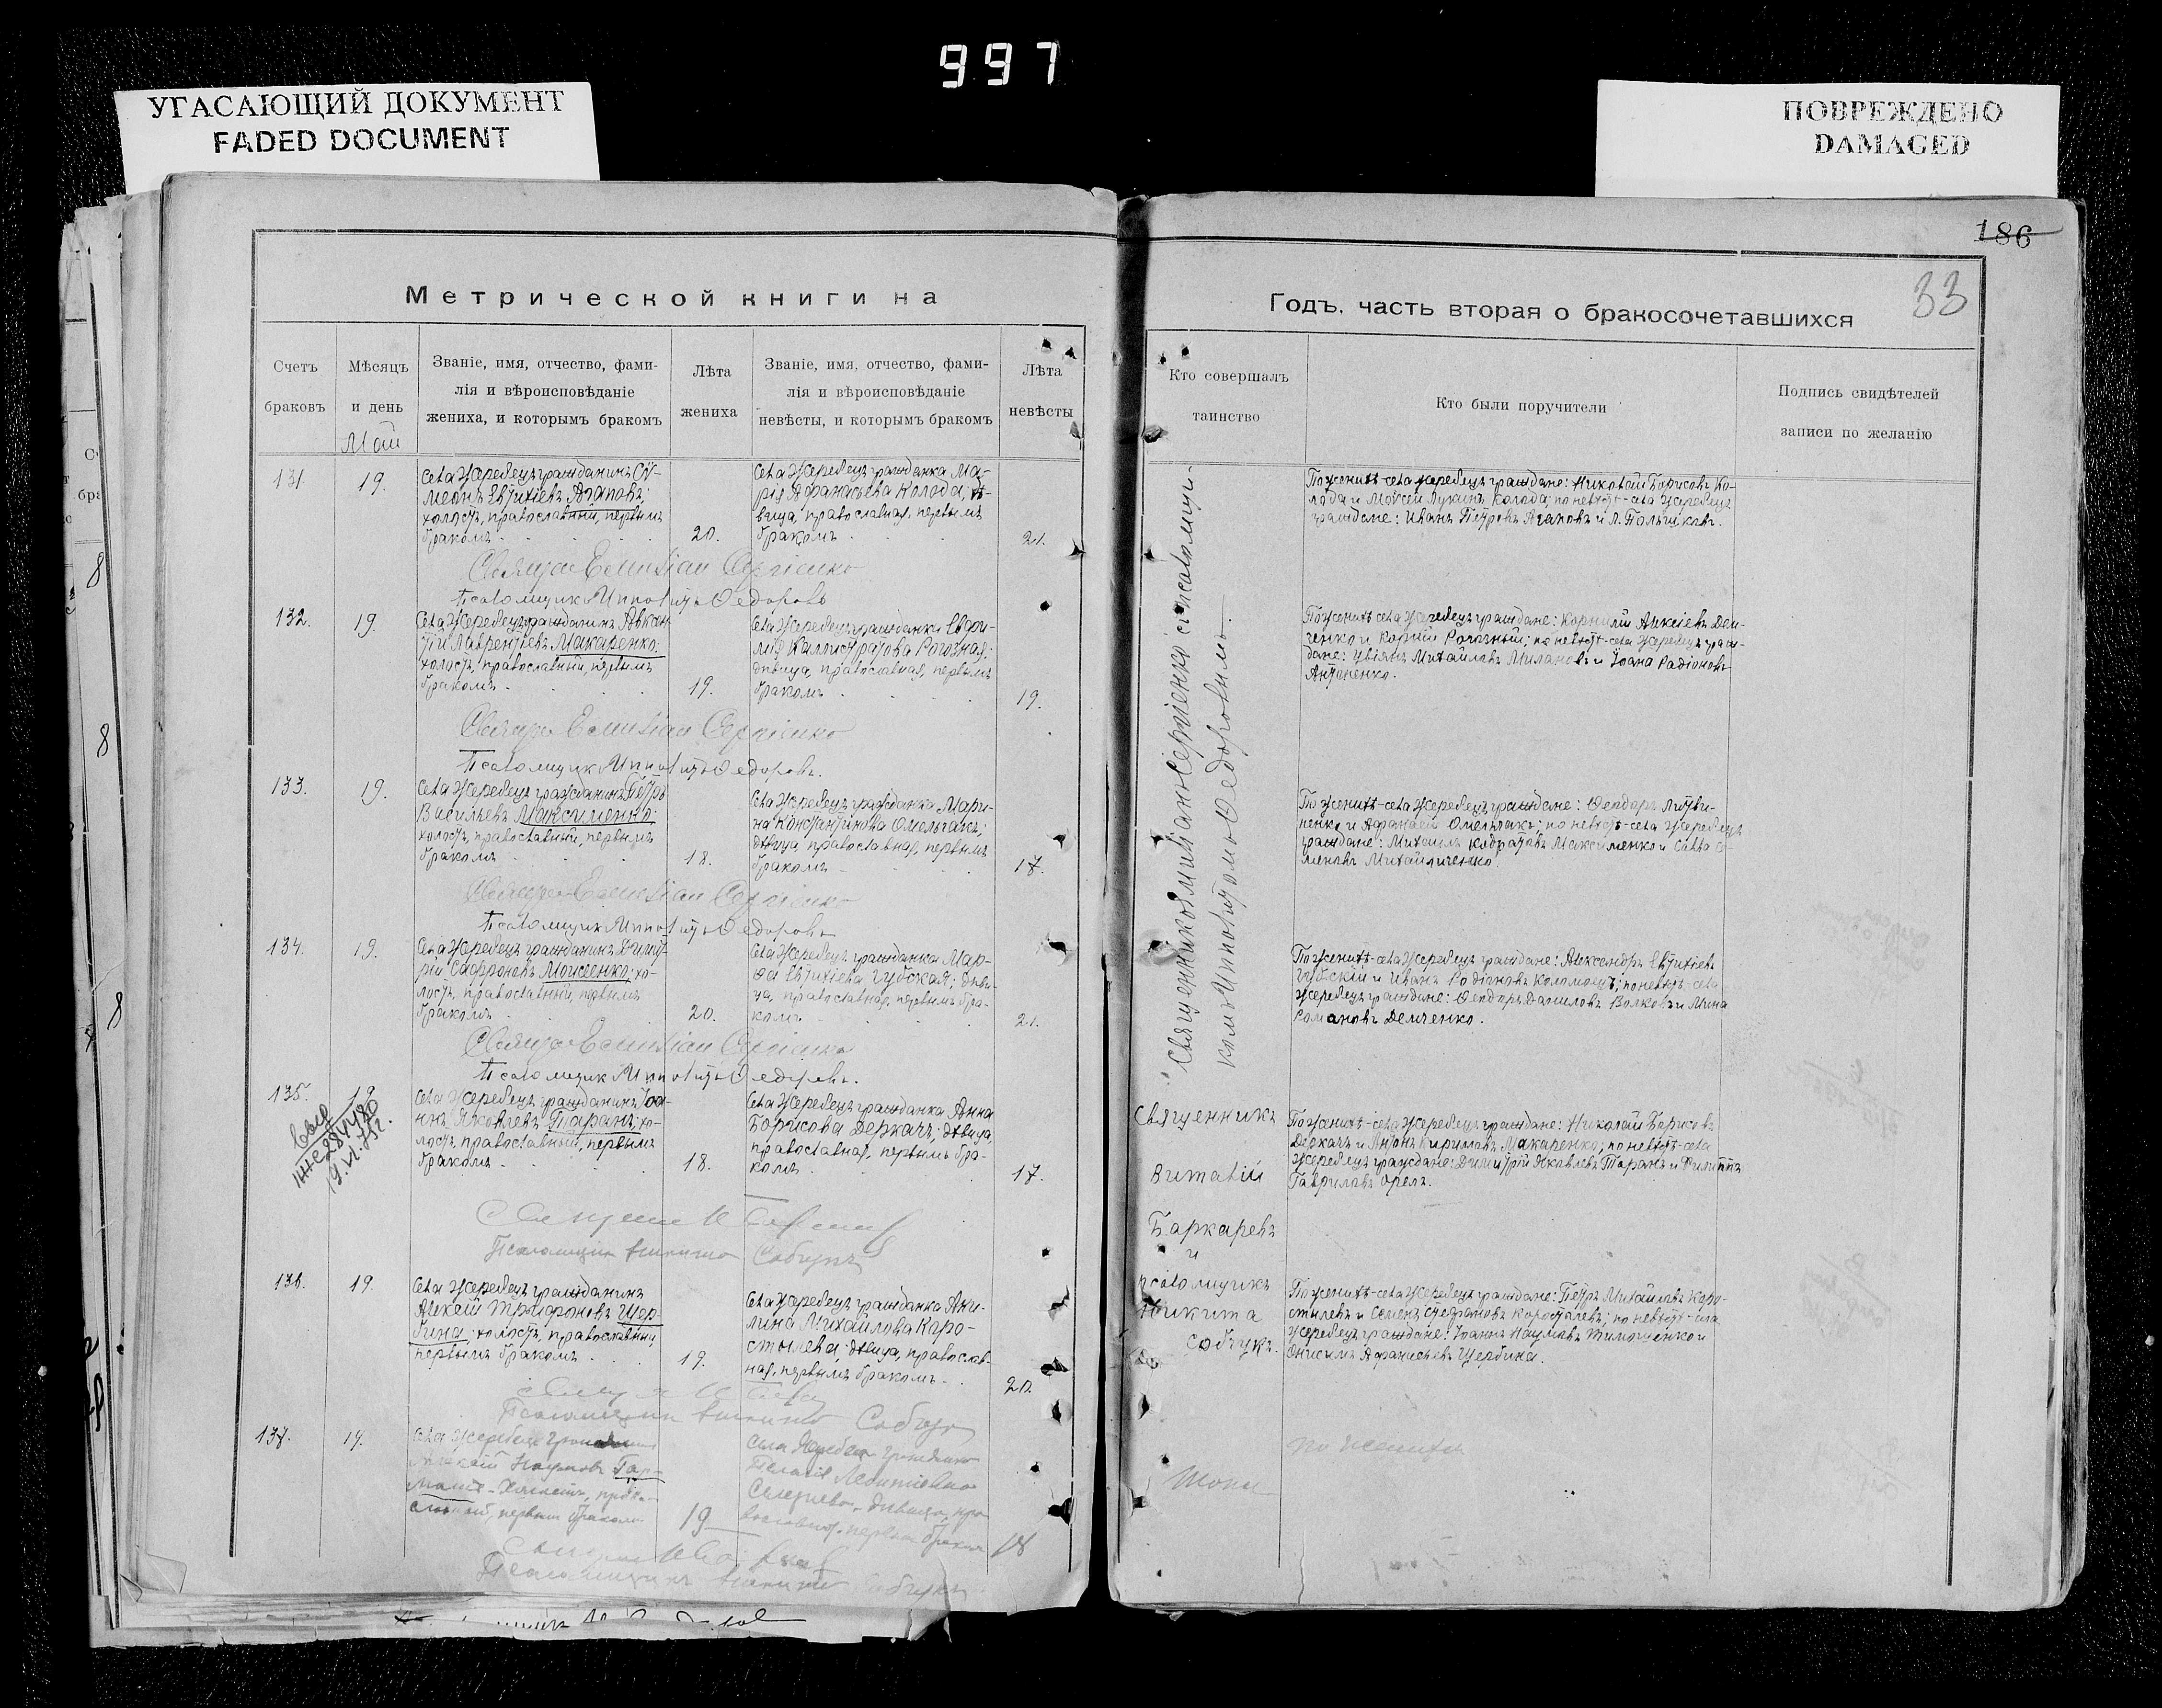 997
УГАСАЮЩИЙ ДОКУМЕНТ
FADED DOCUMENT
ПОВРЕЖДЕНО
DAMAGED
186
33
Метрической книги на
Годъ, часть вторая о бракосочетавшихся
Счетъ
браковъ
Мѣсяцъ
и день
Май
Званіе, имя, отчество, фами-
лія и вѣроисповѣданіе
жениха, и которымъ бракомъ
Лѣта
жениха
Званіе, имя, отчество, фами-
лія и вѣроисповѣданіе
невѣсты, и которымъ бракомъ
Лѣта
невѣсты
Кто совершалъ
таинство
Кто были поручители
Подпись свидѣтелей
записи по желанію
131.
19.
села Жеребецъ гражданинъ Сѵ-
меонъ Евтихіевъ Агаповъ;
холостъ, православный, первымъ
бракомъ
20.
села Жеребецъ гражданка Ма-
рія Афанасьева Колода; дѣ-
вица, православная, первымъ
бракомъ
21.
По женихѣ села Жеребецъ граждане: Николай Борисовъ Ко-
лода и Моѵсей Лукинъ Колода; по невѣстѣ села Жеребецъ
граждане: Иванъ Петровъ Агаповъ и
Емиліан Сергіенко
Псаломщикъ Ипполитъ Ѳедоровъ
132.
19.
села Жеребецъ гражданинъ Авксен-
тій Лаврентіевъ Макаренко;
холостъ, православный, первымъ
бракомъ
19.
села Жеребецъ гражданка Евфи-
мія Каллистратова Рогачная;
дѣвица, православная, первымъ
бракомъ
19.
По женихѣ села Жеребецъ граждане: Корнилій Алексіевъ Дем-
ченко и Корній Рогачный; по невѣстѣ села Жеребецъ граж-
дане: Михайловъ Милановъ и Іоанъ Радіоновъ
Антоненко.
Емиліан Сергіенко
Псаломщикъ Ипполитъ Ѳедоровъ.
133.
19.
села Жеребецъ гражданинъ Петръ
Васильевъ Максименко;
холостъ, православный, первымъ
бракомъ
18.
села Жеребецъ гражданка Мари-
на Константинова Омельчакъ;
дѣвица, православная, первымъ
бракомъ
17.
По женихѣ села Жеребецъ граждане: Ѳеодоръ Литви-
ненко и Афанасій Омельчакъ; по невѣстѣ села Жеребецъ
граждане: Михаилъ Кодратовъ Максименко и Савва Се-
меновъ Михайличенко.
Емиліан Сергіенко
Псаломщикъ Ипполитъ Ѳедоровъ
134.
19.
села Жеребецъ гражданинъ Димит-
рій Сафроновъ Моисеенко; хо-
лостъ, православный, первымъ
бракомъ
20.
села Жеребецъ гражданка Мар-
ѳа Евтихіева Губская; дѣви-
ца, православная, первымъ бра-
комъ
21.
По женихѣ села Жеребецъ граждане: Александръ Евтихіевъ
Губскій и Иванъ Родіоновъ Коломоецъ; по невѣстѣ села
Жеребецъ граждане: Ѳеодоръ Даниловъ Волковъ и Мина
Романовъ Демченко.
Емиліан Сергіенко
Псаломщикъ Ипполитъ Ѳедоровъ.
Священникъ Емиліанъ Сергіенко съ псаломщи-
комъ Ипполитомъ Ѳедоровымъ.
135.
19
села Жеребецъ гражданинъ Іоа-
ннъ Яковлевъ Таранъ; хо-
лостъ, православный, первымъ
бракомъ
18.
села Жеребецъ гражданка Анна
Борисова Деркачъ; дѣвица,
православная, первымъ бра-
комъ
17.
Священникъ
Виталій
Баркаревъ
и
псаломщикъ
Никита
Собчукъ.
По женихѣ села Жеребецъ граждане: Николай Борисовъ
Деркачъ и Антонъ Кириловъ Макаренко; по невѣстѣ села
Жеребецъ граждане: Димитрій Яковлевъ Таранъ и Филиппъ
Гавриловъ Орелъ.
Псаломщикъ Никита Собчукъ
136.
19.
села Жеребецъ гражданинъ
Алексій Трифоновъ Щер-
бина; холостъ, православный,
первымъ бракомъ
19.
села Жеребецъ гражданка Аки-
лина Михайлова Коро-
стылева; дѣвица, православ-
ная, первымъ бракомъ
20.
По женихѣ села Жеребецъ граждане: Петръ Михайловъ Коро-
стылевъ и Семенъ Стефановъ Коросталевъ; по невѣстѣ села
Жеребецъ граждане: Іоаннъ Наумовъ Тимошенко и
Онисимъ Афанасьевъ Щербина.
Псаломщикъ Никита Собчукъ
137.
19.
села Жеребецъ
Наумовъ
холостъ, право-
славный, первым бракомъ
19
села Жеребецъ гражданка
Пелагія Леонтіевна
дѣвица, пра-
вославная, первым бракомъ
18
по женихѣ
Псаломщикъ Никита Собчукъ